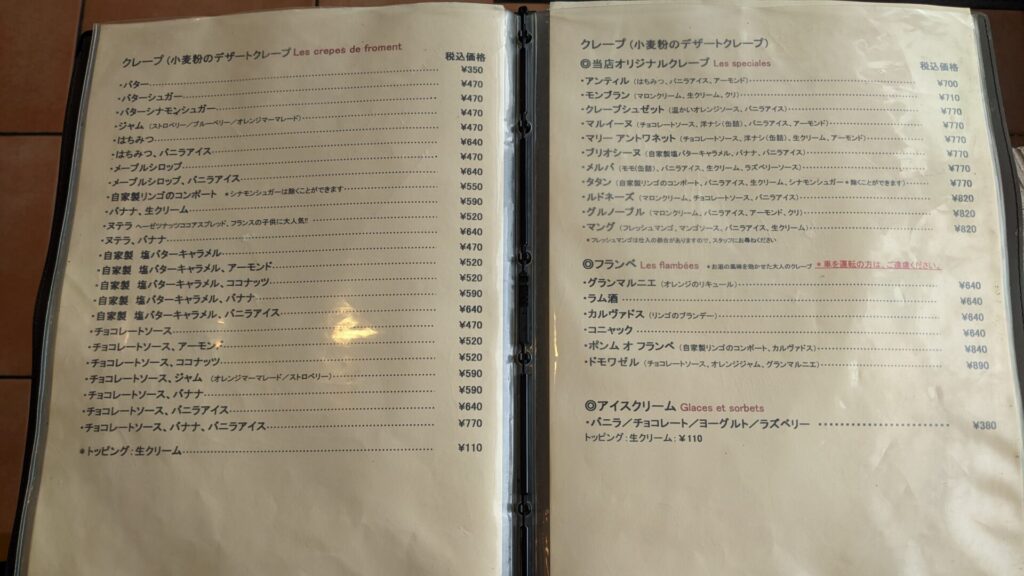 クレープ(小麦粉のデザートクレープ Les crepes de froment
税込価格
・バター ¥350
・バターシュガー ¥470
・バターシナモンシュガー ¥470
・ジャム (ストロベリー/ブルーベリー/オレンジマーマレード) ¥470
・はちみつ ¥470
・はちみつ、バニラアイス ¥640
・メープルシロップ ¥470
・メープルシロップ、バニラアイス ¥640
・自家製リンゴのコンポート *シナモンシュガーは除くことができます ¥550
・バナナ、生クリーム ¥590
・ヌテラ ヘーゼツナッツココアスプレッド、フランスの子供に大人気!! ¥520
・ヌテラ、バナナ ¥640
・自家製 塩バターキャラメル ¥470
・自家製 塩バターキャラメル、アーモンド ¥520
・自家製 塩バターキャラメル、ココナッツ ¥520
・自家製 塩バターキャラメル、バナナ ¥590
・自家製 塩バターキャラメル、バニラアイス ¥640
・チョコレートソース ¥470
・チョコレートソース、アーモンド ¥520
・チョコレートソース、ココナッツ ¥520
・チョコレートソース、ジャム (オレンジマーマレード/ストロベリー) ¥590
・チョコレートソース、バナナ ¥590
・チョコレートソース、バニラアイス ¥640
・チョコレートソース、バナナ、バニラアイス ¥770
*トッピング:生クリーム ¥110
クレープ(小麦粉のデザートクレープ)
◎当店オリジナルクレープ Les speciales 税込価格
・アンティル (はちみつ、バニラアイス、アーモンド) ¥700
・モンブラン (マロンクリーム、生クリーム、クリ) ¥710
・クレープシュゼット (温かいオレンジソース、バニラアイス) ¥770
・マルイーヌ (チョコレートソース、洋ナシ(缶詰)、バニラアイス、アーモンド) ¥770
・マリー アントワネット (チョコレートソース、洋ナシ(缶詰)、生クリーム、アーモンド) ¥770
・ブリオシーヌ (自家製塩バターキャラメル、バナナ、バニラアイス) ¥770
・メルバ (モモ(缶詰)、バニラアイス、生クリーム、ラズベリーソース) ¥770
・タタン (自家製リンゴのコンポート、バニラアイス、生クリーム、シナモンシュガー*除くことができます) ¥770
・ルドネーズ (マロンクリーム、チョコレートソース、バニラアイス) ¥820
・グルノーブル (マロンクリーム、バニラアイス、アーモンド、クリ) ¥820
・マング (フレッシュマンゴ、マンゴソース、バニラアイス、生クリーム) ¥820
*フレッシュマンゴは仕入の都合がありますので、スタッフにお尋ねください
◎フランベ Les flambées *お酒の風味を効かせた大人のクレープ *車を運転の方は、ご遠慮ください。
・グランマルニエ (オレンジのリキュール) ¥640
・ラム酒 ¥640
・カルヴァドス (リンゴのブランデー) ¥640
・コニャック ¥640
・ポンム オ フランベ (自家製リンゴのコンポート、カルヴァドス) ¥840
・ドモワゼル (チョコレートソース、オレンジジャム、グランマルニエ) ¥890
◎アイスクリーム Glaces et sorbets
・バニラ/チョコレート/ヨーグルト/ラズベリー ¥380
トッピング:生クリーム:¥110